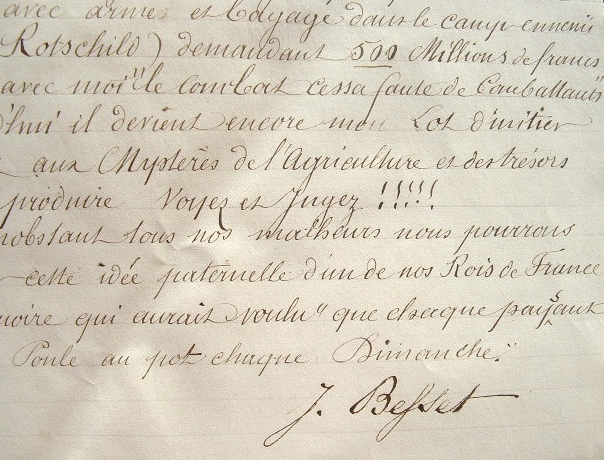 avec armes et bagage dans le camp ennemi
Rotschild) demandant 500 Millions de francs
avec moi" le combat cessa faute de Combattants"
d'hui il devient encore mon Lot d'initier
aux Mystères de l'Agriculture et des trésors
produire Voyez et Jugez !!!!!
nobstant tous nos malheurs nous pourrons
cette idée paternelle d'un de nos Rois de France
moire qui aurait voulu" que chaque paysant
Poule au pot chaque Dimanche."
J. Besset